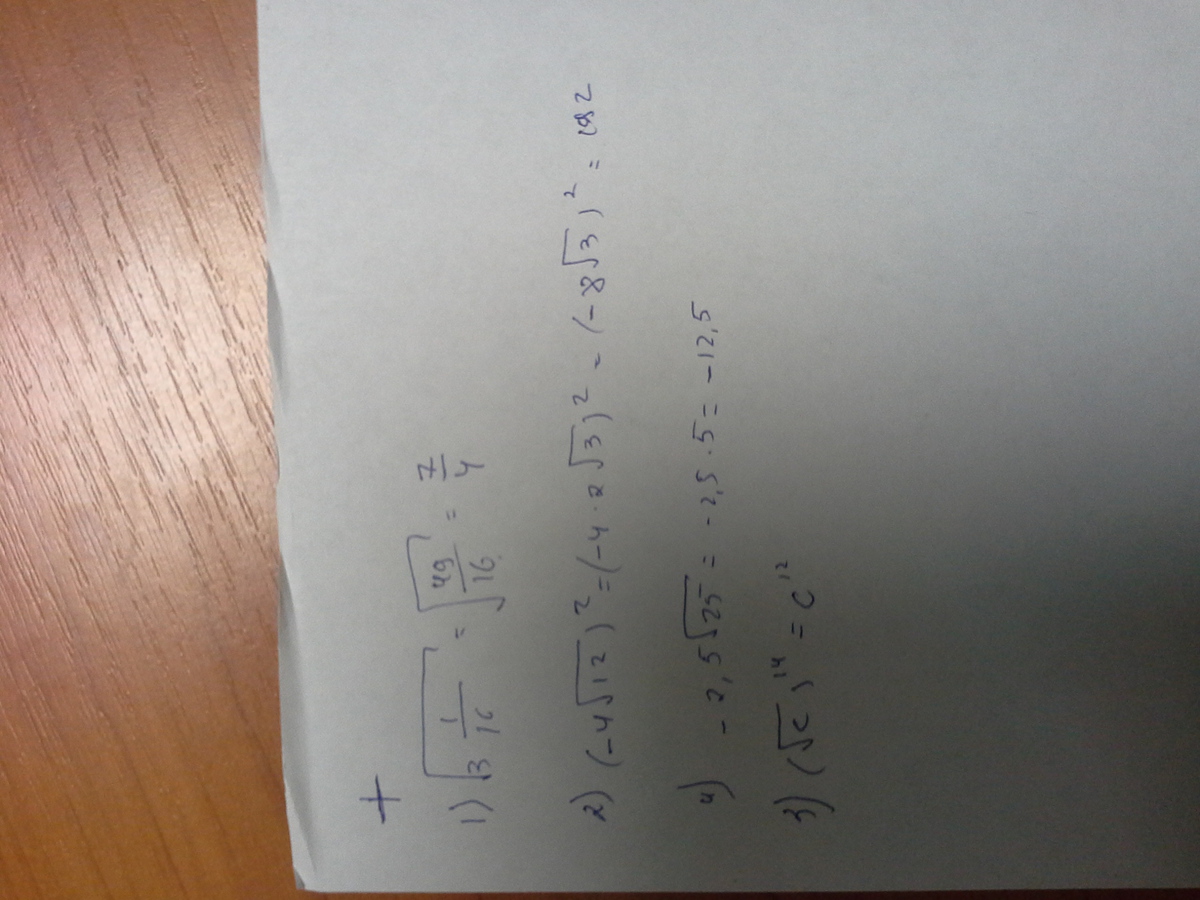 +
1) √(3 1/16) = √(49/16) = 7/4
2) (-4√12)² = (-4·2√3)² = (-8√3)² = 192
4) -2,5√25 = -2,5·5 = -12,5
3) (√c)¹⁴ = c¹²